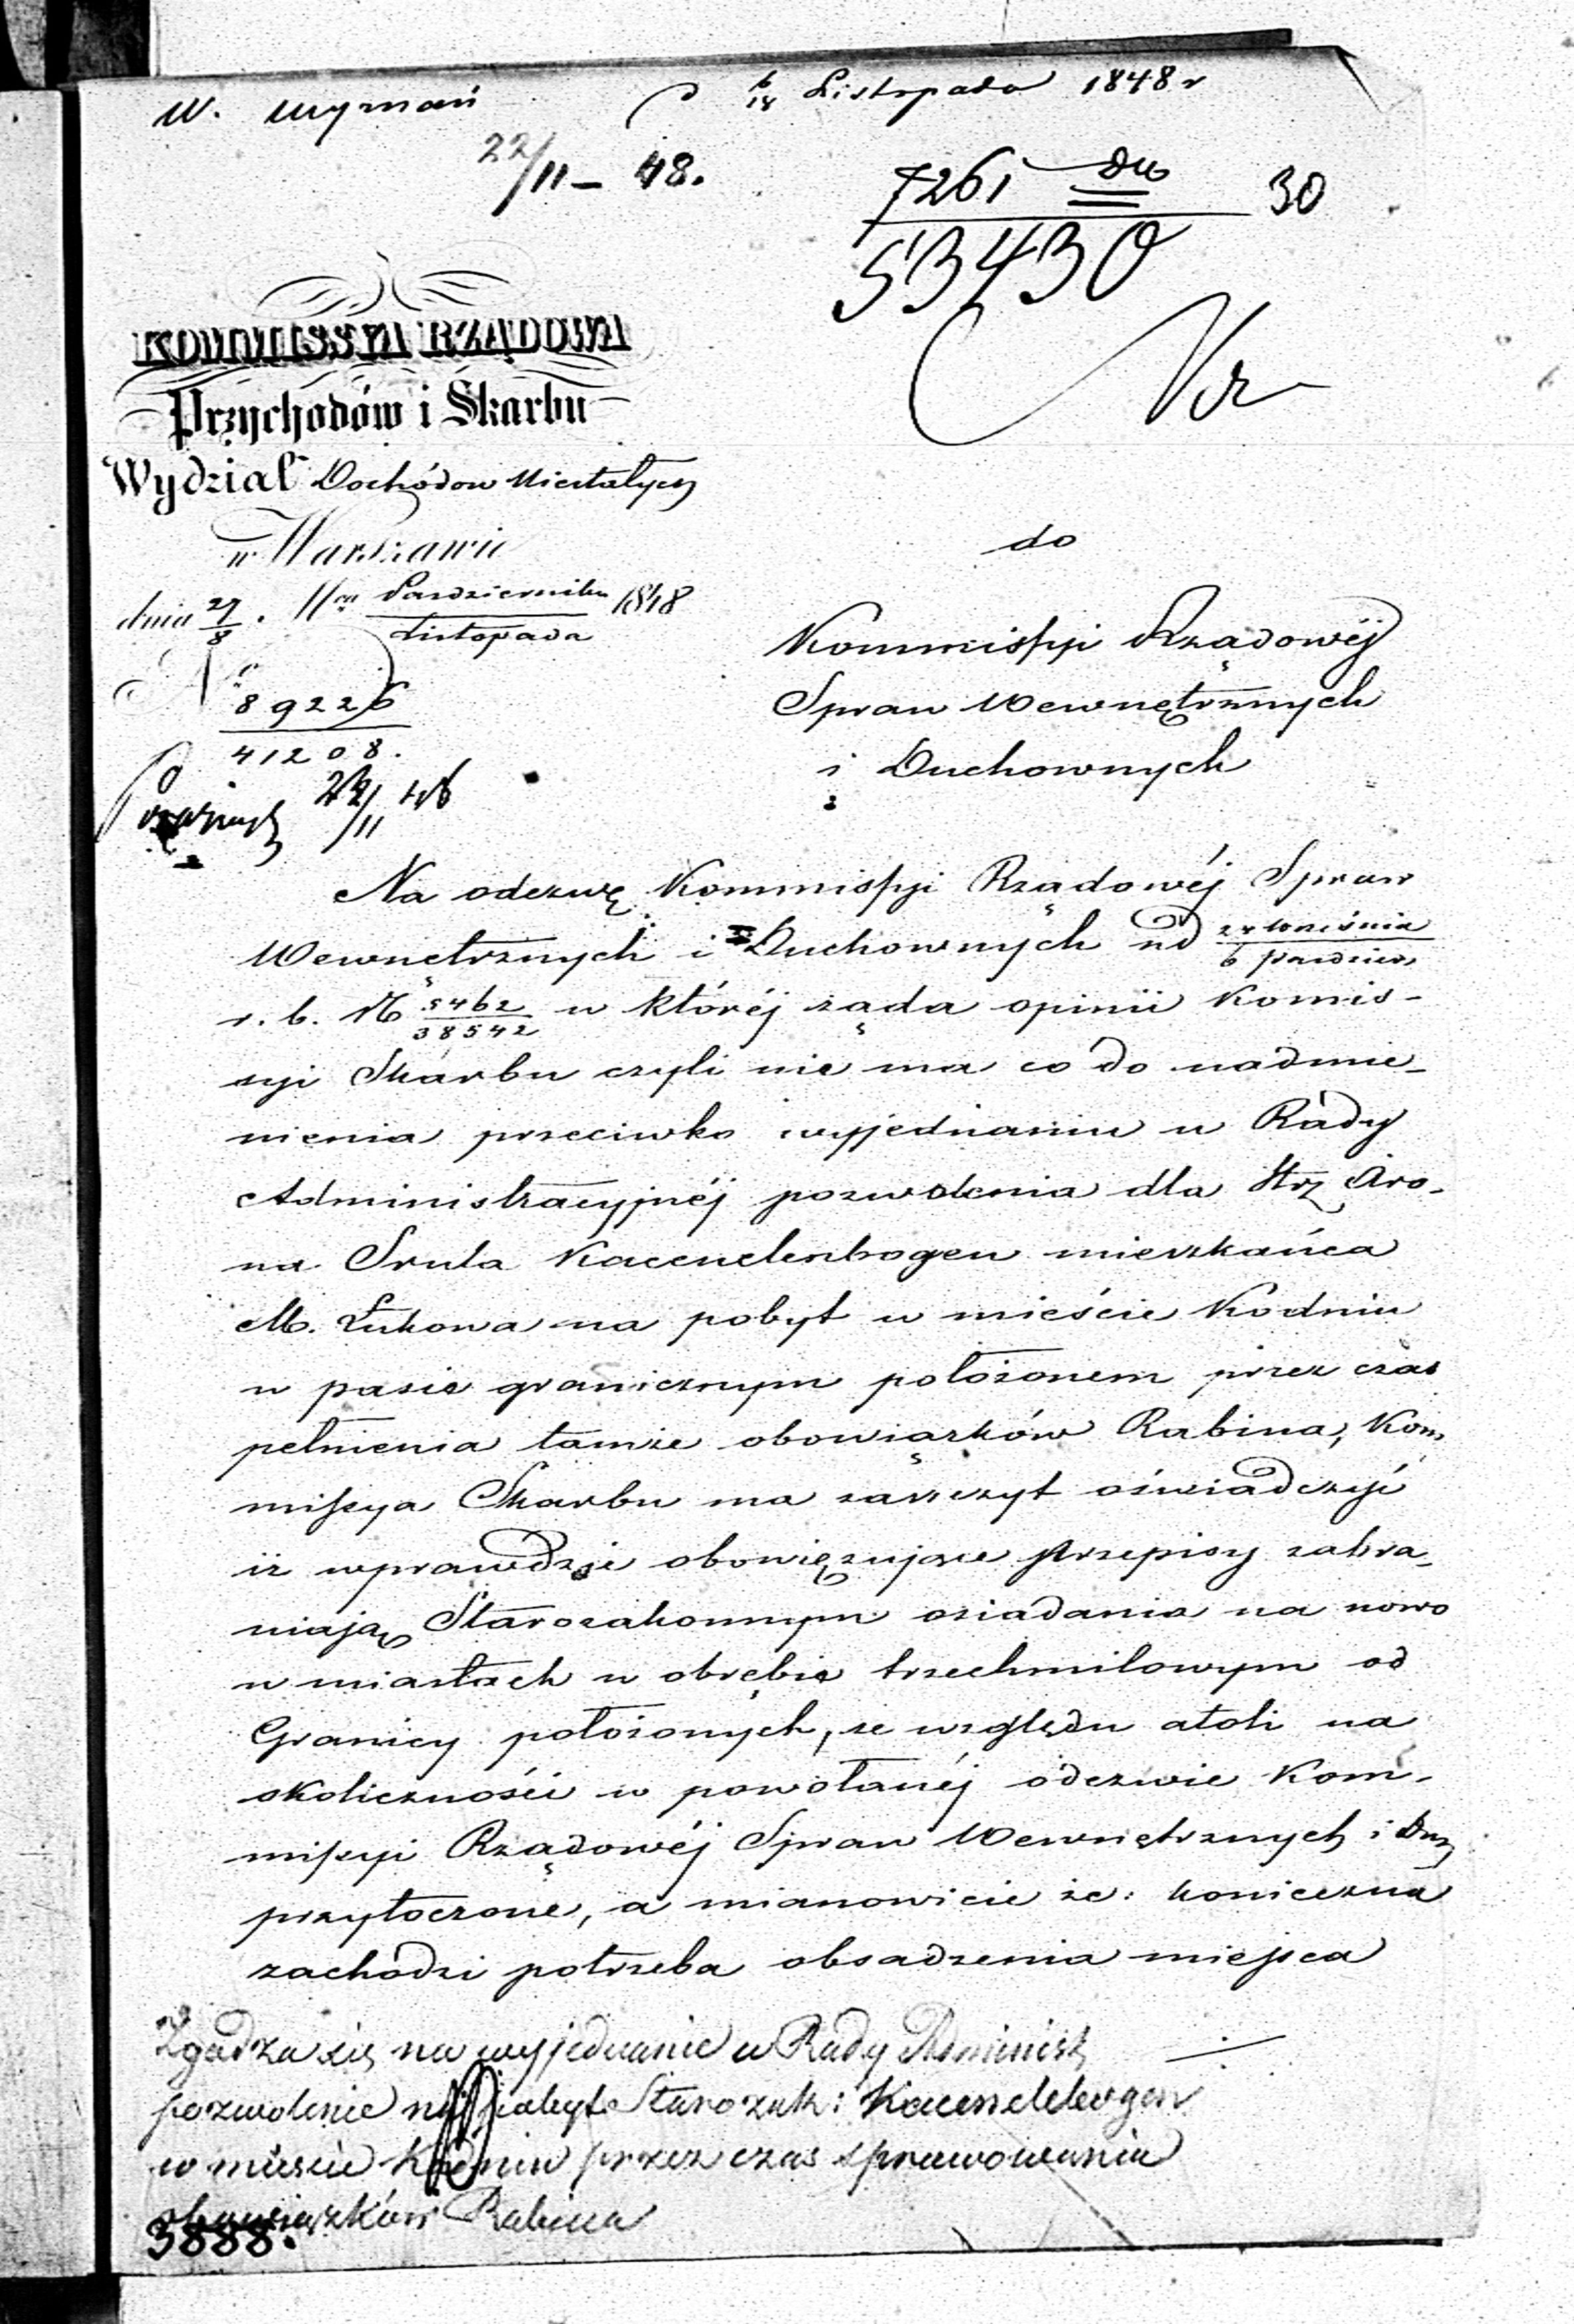 W. Wyznań
6/18 Listopada 1848 r
22/11 – 48.
7261 30
53430
KOMMISSYA RZĄDOWA
Przychodów i Skarbu
Wydział Dochódow Niestałych
w Warszawie
dnia 27/8. Października/Listopada 1848
No 89226
41208.
22/11 48
do
Kommissyi Rządowéj
Spraw Wewnętrznych
i Duchownych
Na odezwę Kommissyi Rządowéj Spraw
Wewnętrznych i Duchownych od 24 Września/6 Paździer
r. b. No 5462/38542 w któréj żąda opinii Komis-
syi Skarbu czyli nie ma co do nadmie-
nienia przeciwko wyjednaniu u Rady
Administracyjnéj pozwolenia dla Strz Aro-
na Srula Kacenelenbogen mieszkańca
M. Łukowa na pobyt w mieście Kodniu
w pasie granicznym położonem przez czas
pełnienia tamże obowiązków Rabina, Kom
missya Skarbu ma zaszczyt oświadczyć
iż wprawdzie obowięzujące przepisy zabra-
niają Starozakonnym osiadania na nowo
w miastach w obrębie trzechmilowym od
Granicy położonych, ze względu atoli na
okoliczności w powołanéj odezwie Kom-
missyi Rządowéj Spraw Wewnętrznych i Du
przytoczone, a mianowicie że: konieczna
zachodzi potrzeba obsadzenia miejsca
Zgadza się na wyjednanie u Rady Administ
pozwolenie na pobyt Starozak: Kacenelebogen
w mieście Kodniu przez czas sprawowania
obowiązków Rabina
3888.